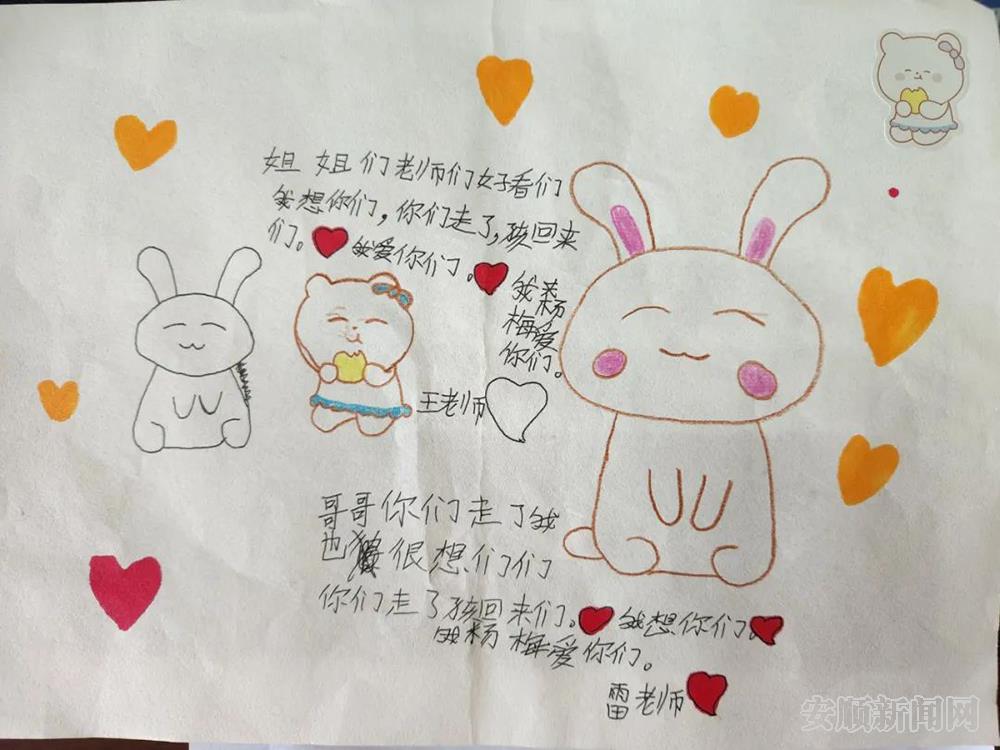 姐姐们老师们好看们
我想你们，你们走了，孩回来
们。我爱你们。
我杨
梅爱
你们。
王老师
哥哥你们走了我
也很想们们
你们走了孩回来们。我想你们。
我杨梅爱你们。
雷老师
安顺新闻网